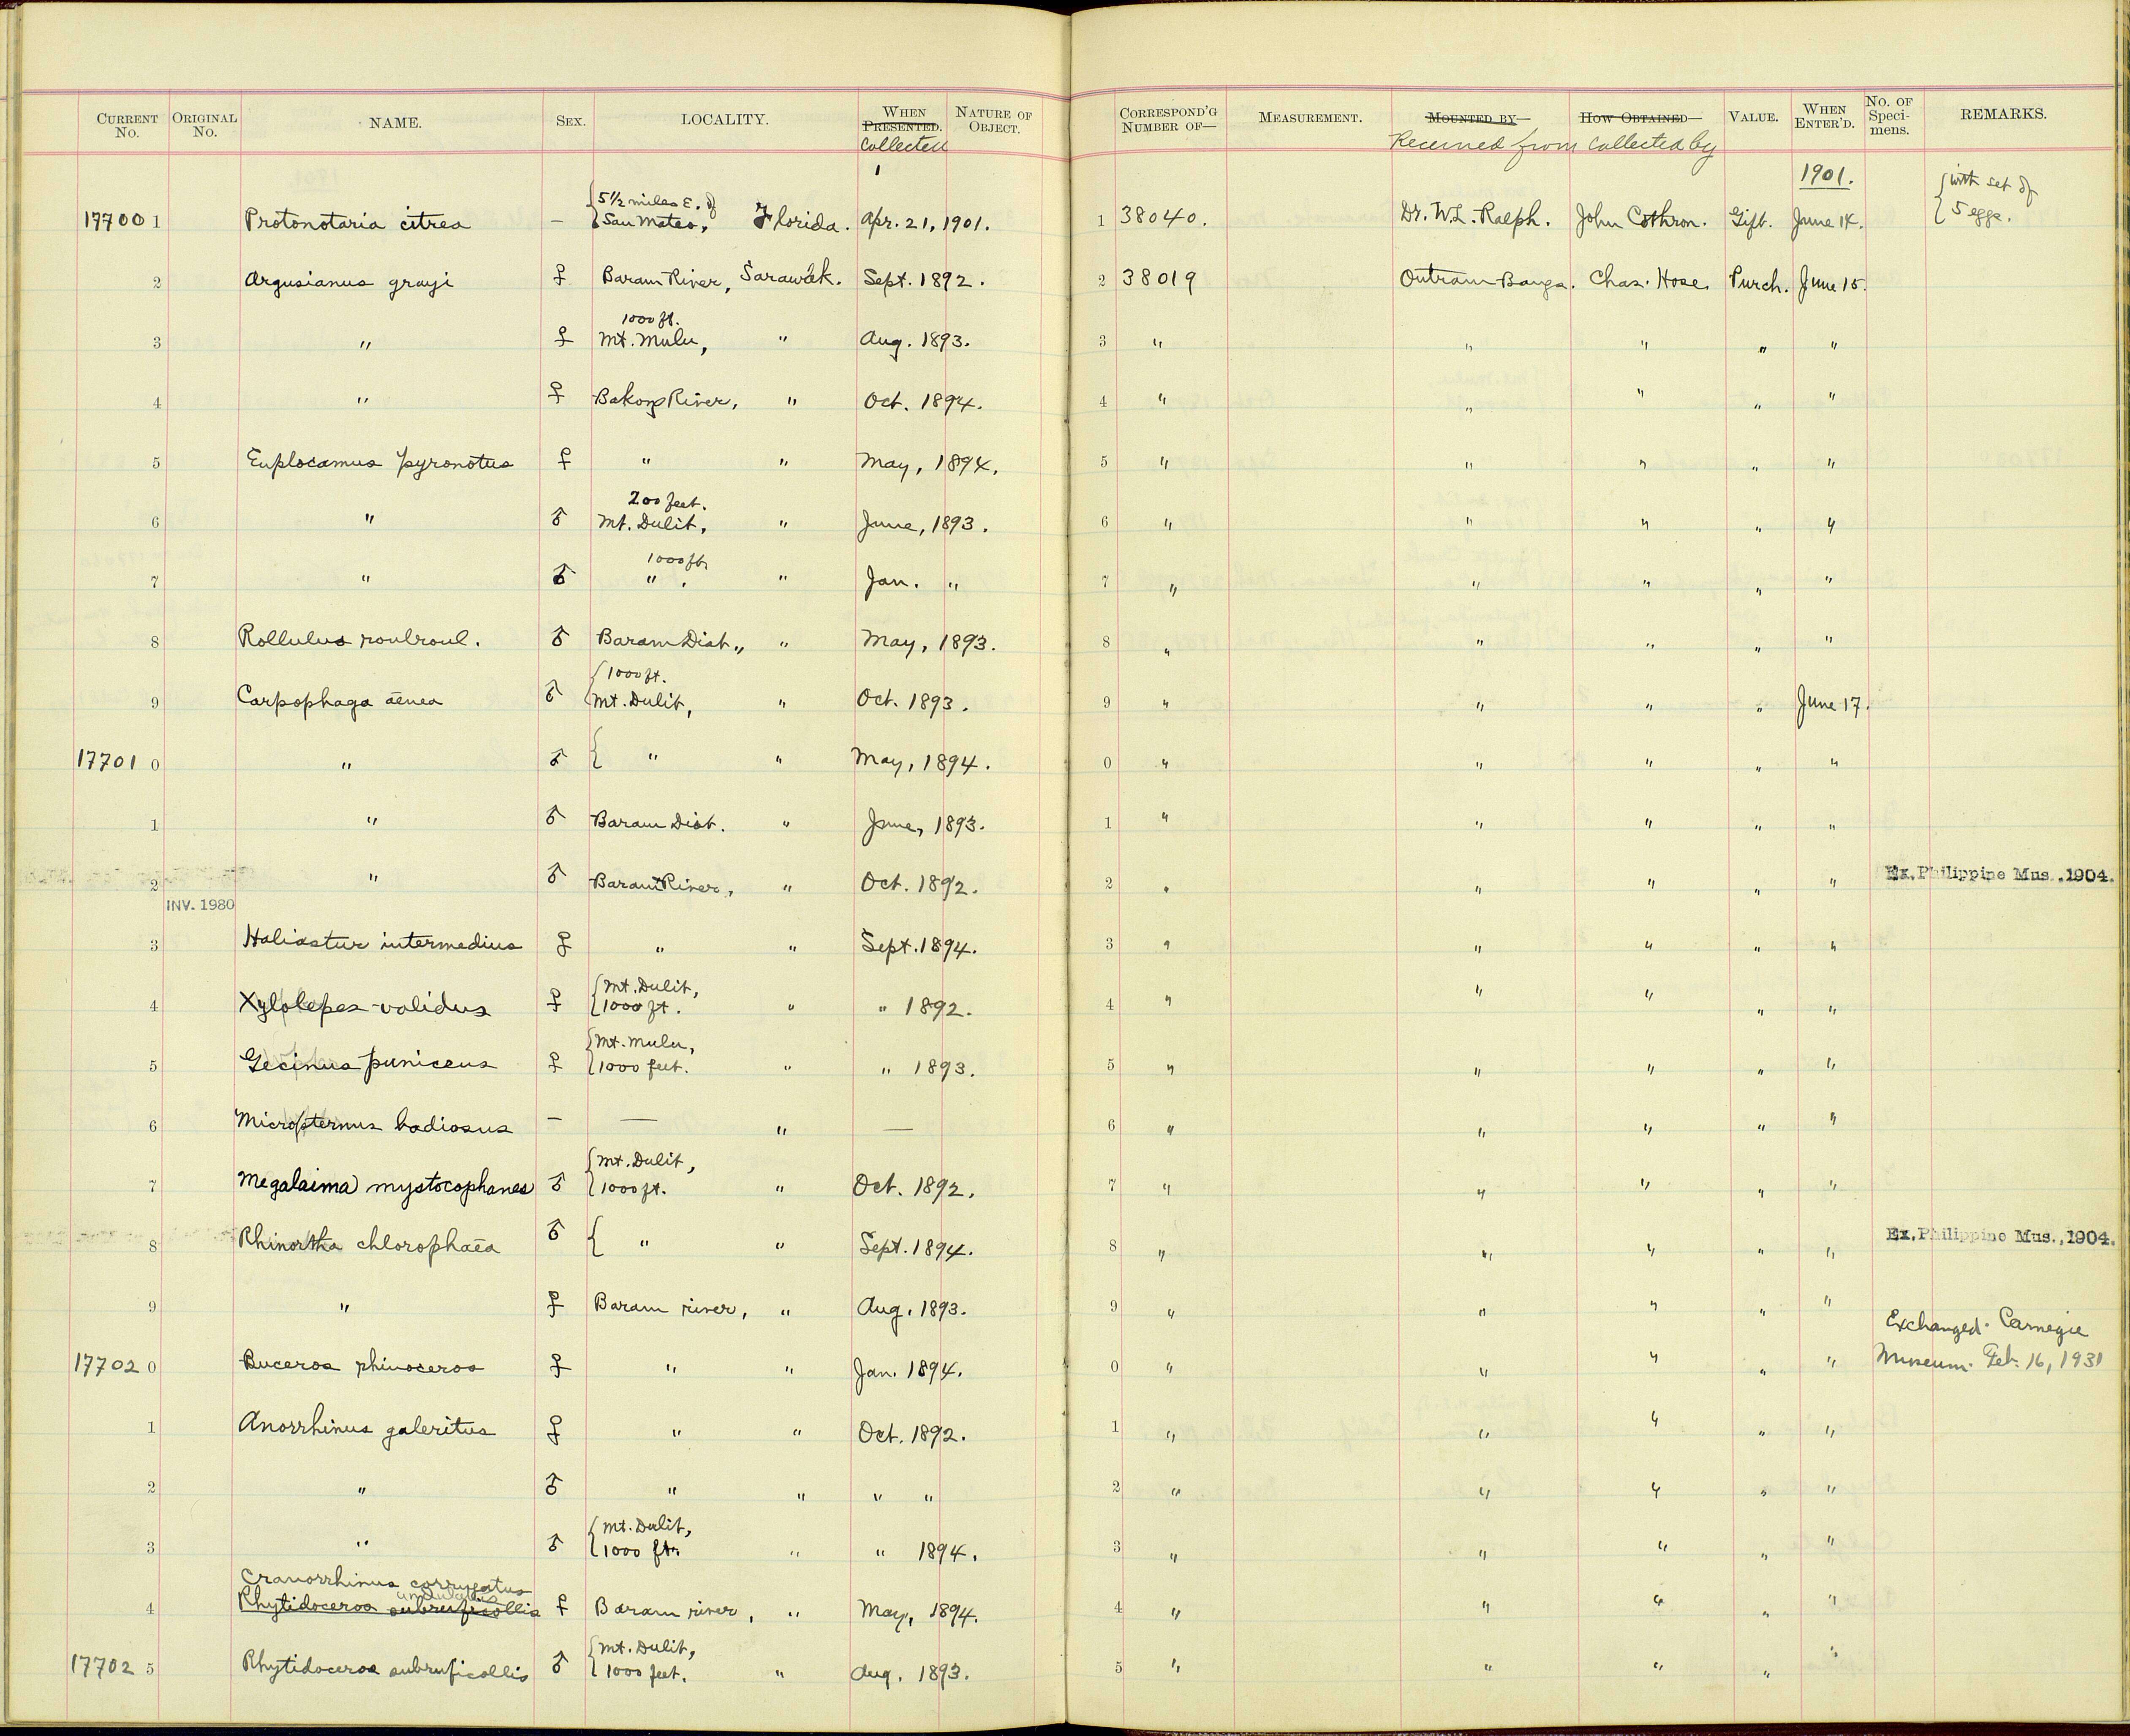 CURRENT No. ORIGINAL No. NAME. SEX. LOCALITY. WHEN PRESENTED. Collected NATURE OF OBJECT. CORRESPOND'G NUMBER OF— MEASUREMENT. MOUNTED BY— Received from HOW OBTAINED— Collected by VALUE. WHEN ENTER'D. No. OF Speci-mens. REMARKS.
1901.
17700 1 Protonotaria citrea — { 5½ miles E. of San Mateo, Florida. Apr. 21, 1901. 1 38040. Dr. W.L. Ralph. John Cothron. Gift. June 14. { with set of 5 eggs.
2 Argusianus grayi ♀ Baram River, Sarawak. Sept. 1892. 2 38019 Outram Bangs. Chas. Hose. Purch. June 15.
3 " ♀ 1000 ft. Mt. Mulu, " Aug. 1893. 3 " " " " "
4 " ♀ Bakong River, " Oct. 1894. 4 " " " " "
5 Euplocamus pyronotus ♀ " " May, 1894. 5 " " " " "
6 " ♂ 200 feet. Mt. Dulit, " June, 1893. 6 " " " " "
7 " ♂ 1000 ft. " , " Jan. " 7 " " " " "
8 Rollulus roulroul. ♂ Baram Dist., " May, 1893. 8 " " " " "
9 Carpophaga aënea ♂ { 1000 ft. Mt. Dulit, " Oct. 1893. 9 " " " " June 17.
17701 0 " ♂ { " " May, 1894. 0 " " " " "
1 " ♂ Baram Dist. " June, 1893. 1 " " " " "
2 " ♂ Baram River, " Oct. 1892. 2 " " " " " Ex. Philippine Mus. 1904.
INV. 1980
3 Haliastur intermedius ♀ " " Sept. 1894. 3 " " " " "
4 Xylolepes validus ♀ { Mt. Dulit, 1000 ft. " " 1892. 4 " " " " "
5 Gecinus puniceus ♀ { Mt. Mulu, 1000 feet. " " 1893. 5 " " " " "
6 Micropternus badiosus — — " — 6 " " " " "
7 Megalaima mystocophanes ♂ { Mt. Dulit, 1000 ft. " Oct. 1892. 7 " " " " "
8 Rhinortha chlorophaëa ♂ { " " Sept. 1894. 8 " " " " " Ex. Philippine Mus., 1904.
9 " ♀ Baram river, " Aug. 1893. 9 " " " " "
17702 0 Buceros rhinoceros ♀ " " Jan. 1894. 0 " " " " " Exchanged. Carnegie Museum. Feb. 16, 1931
1 Anorrhinus galeritus ♀ " " Oct. 1892. 1 " " " " "
2 " ♂ " " " " 2 " " " " "
3 " ♂ { Mt. Dulit, 1000 ft. " " 1894. 3 " " " " "
Cranorrhinus corrugatus
undulatus
4 Rhytidoceros subruficollis ♀ Baram river, " May, 1894. 4 " " " " "
17702 5 Rhytidoceros subruficollis ♂ { Mt. Dulit, 1000 feet. " Aug. 1893. 5 " " " " "